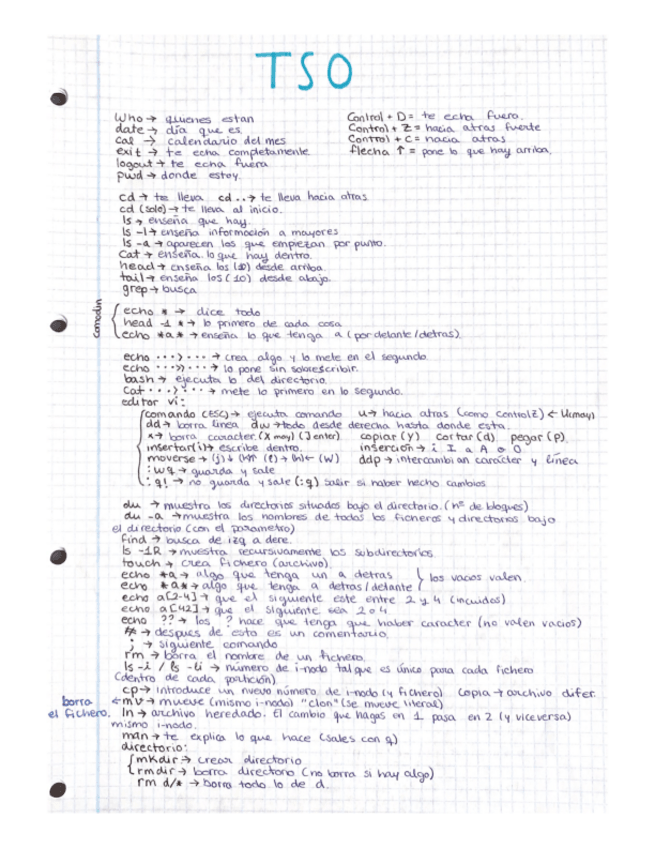 TSO
Who → quienes estan
date → día que es.
cal → calendario del mes
exit → te echa completamente
logout → te echa fuera
pwd → donde estoy.
Control + D = te echa fuera.
Control + Z = hacia atras fuerte
Control + C = hacia atras.
flecha ↑ = pone lo que hay arriba.
cd → te lleva cd .. → te lleva hacia atras
cd (solo) → te lleva al inicio.
ls → enseña que hay.
ls -l → enseña información a mayores
ls -a → aparecen los que empiezan por punto.
Cat → enseña lo que hay dentro.
head → enseña los (10) desde arriba.
tail → enseña los (10) desde abajo.
grep → busca
comodin
echo * → dice todo
head -1 * → lo primero de cada cosa
echo *a* → enseña lo que tenga a (por delante/detras).
echo ...>... → crea algo y lo mete en el segundo.
echo ...>>... → lo pone sin sobrescribir.
bash → ejecuta lo del directorio.
Cat ...>... → mete lo primero en lo segundo.
editor vi:
comando (ESC) → ejecuta comando u → hacia atras (como controlZ) ← U(may)
dd → borra linea dw → todo desde derecha hasta donde esta.
x → borra caracter. (X may) (J enter) copiar (Y) cortar (d) pegar (P).
insertar (i) → escribe dentro. inserción → i I a A o O
moverse → (j) ↓ (k) ↑ (l) → (h) ← (W) ddp → intercambian carácter y línea
:wq → guarda y sale
:q! → no guarda y sale (:q) salir si haber hecho cambios
du → muestra los directorios situados bajo el directorio. (nº de bloques)
du -a → muestra los nombres de todos los ficheros y directorios bajo
el directorio (con el parametro)
find → busca de izq a dere.
ls -1R → muestra recursivamente los subdirectorios.
touch → crea fichero (archivo).
echo *a → algo que tenga un a detras
echo *a* → algo que tenga a detras/delante
los vacios valen.
echo a[2-4] → que el siguiente este entre 2 y 4 (incuidos)
echo a[42] → que el siguiente sea 2 o 4
echo ?? → los ? hace que tenga que haber caracter (no valen vacios)
# → despues de esto es un comentario
; → siguiente comando
rm → borra el nombre de un fichero.
ls -i / ls -li → número de i-nodo tal que es único para cada fichero
(dentro de cada partición).
cp → introduce un nuevo número de i-nodo (y fichero) copia → archivo difer.
borra
el fichero.
← mv → mueve (mismo i-nodo) "clon" (se mueve literal)
ln → archivo heredado. El cambio que hagas en 1 pasa en 2 (y viceversa)
mismo i-nodo.
man → te explica lo que hace (sales con q)
directorio:
mkdir → crear directorio
rmdir → borra directorio (no borra si hay algo)
rm d/* → borra todo lo de d.